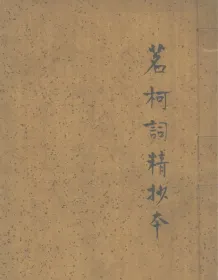 茗柯詞精抄本